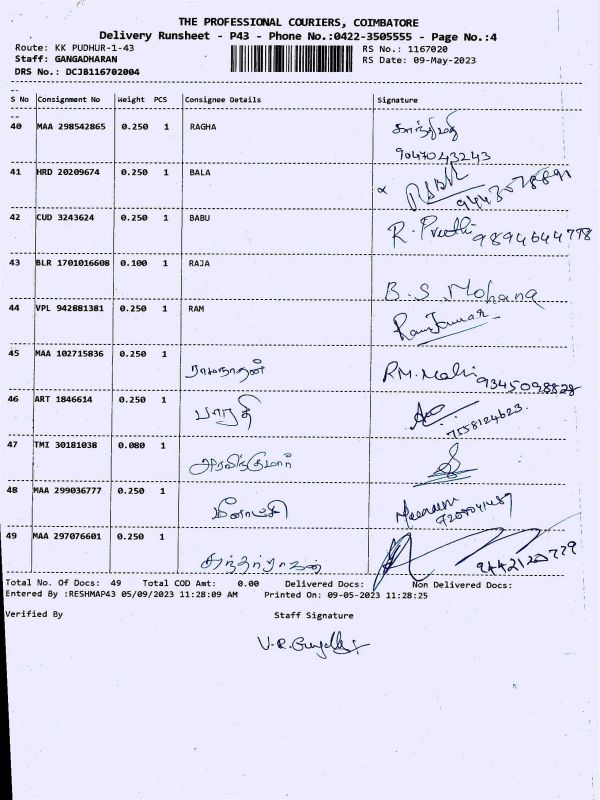 THE PROFESSIONAL COURIERS, COIMBATORE
Delivery Runsheet - P43 - Phone No.:0422-3505555 - Page No.:4
Route: KK PUDHUR-1-43 RS No.: 1167020
Staff: GANGADHARAN RS Date: 09-May-2023
DRS No.: DCJB116702004
S No Consignment No Weight PCS Consignee Details Signature
40 MAA 298542865 0.250 1 RAGHA
9047043243
41 HRD 20209674 0.250 1 BALA
9443078891
42 CUD 3243624 0.250 1 BABU R. Preethi 9894644778
43 BLR 1701016608 0.100 1 RAJA
B. S. Mohana
44 VPL 942881381 0.250 1 RAM Ramkumar
45 MAA 102715836 0.250 1
ராமநாதன் RM. Mahi 9345098828
46 ART 1846614 0.250 1
பாரதி 7558124623
47 TMI 30181038 0.080 1
அரவிந்குமார்
48 MAA 299036777 0.250 1
மீனாட்சி
49 MAA 297076601 0.250 1
Total No. Of Docs: 49 Total COD Amt: 0.00 Delivered Docs: Non Delivered Docs:
Entered By :RESHMAP43 05/09/2023 11:28:09 AM Printed On: 09-05-2023 11:28:25
Verified By Staff Signature